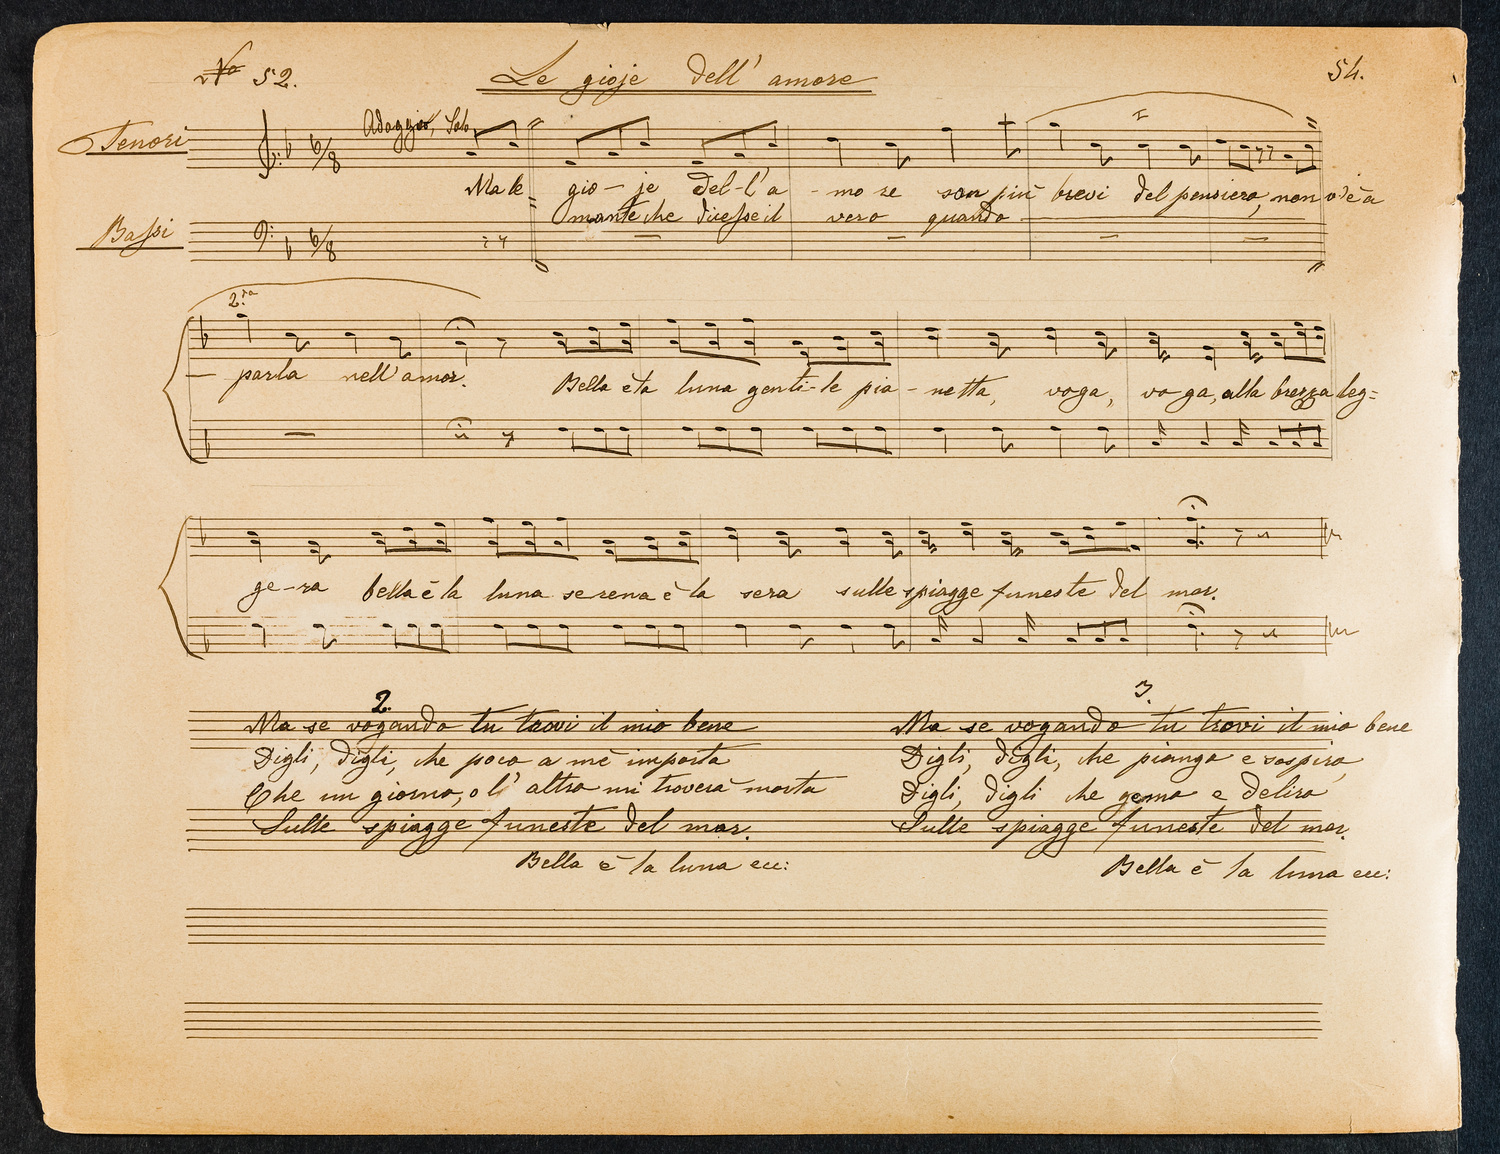 No 52.
Le gioje dell' amore
54.
Tenori
Adaggio, Solo
6/8
Ma le gio - je del - l'a - mo re son più brevi del pensiero, non v'è a
mante che dicesse il vero quando
Bassi
6/8
2.da
parla nell'amor. Bella è la luna genti - le pia - netta, voga, vo ga, alla brezza leg=
ge - ra bella è la luna serena è la sera sulle spiagge funeste del mar.
2.
Ma se vogando tu trovi il mio bene
Digli, digli, che poco a me importa
Che un giorno, o l' altro mi troverà morta
Sulle spiagge funeste del mar.
Bella è la luna ecc:
3.
Ma se vogando tu trovi il mio bene
Digli, digli, che piango e sospiro
Digli, digli che gemo e deliro
Sulle spiagge funeste del mar.
Bella è la luna ecc: